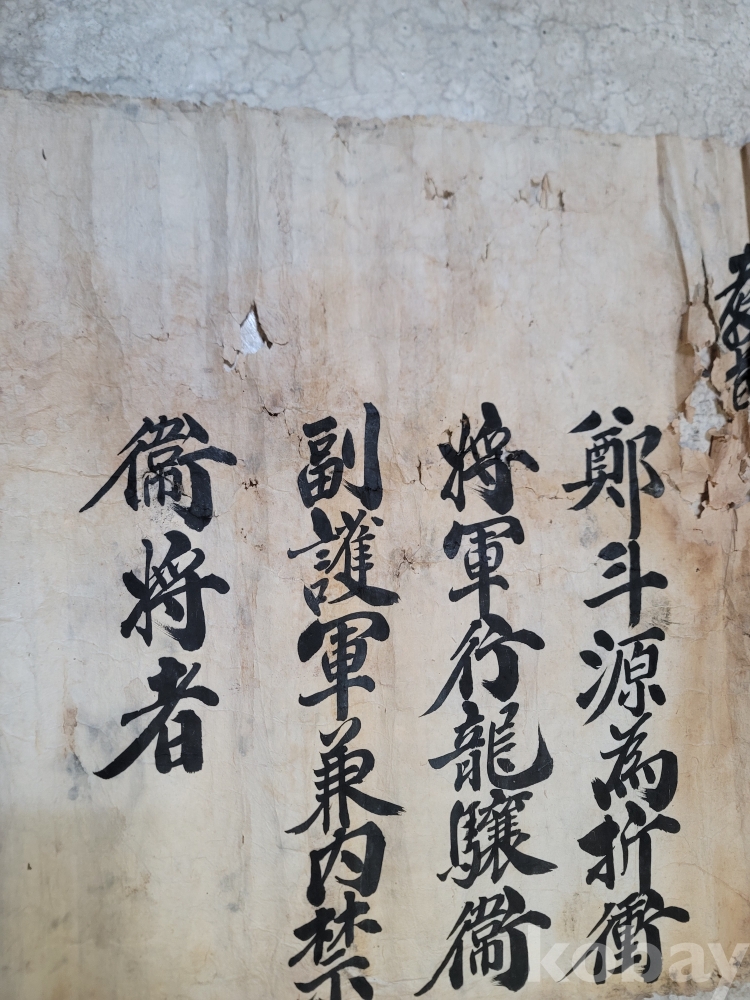 教旨
鄭斗源為折衝
將軍行龍驤衛
副護軍兼內禁
衛將者
kobay